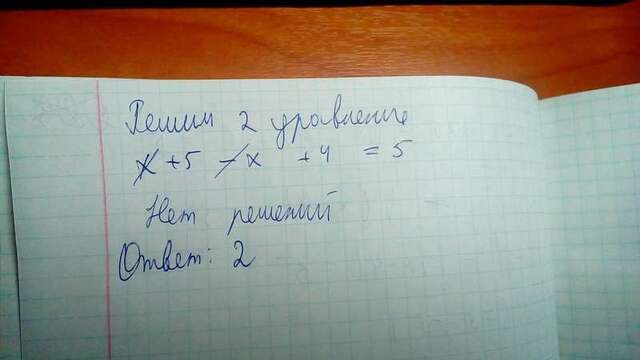 Решим 2 уравнение
x + 5 - x + 4 = 5
Нет решений
Ответ: 2